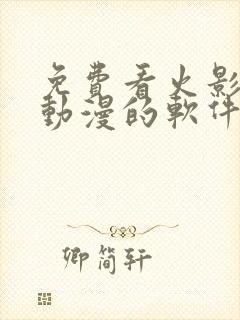 免費看火影
動漫的軟件
卿簡軒